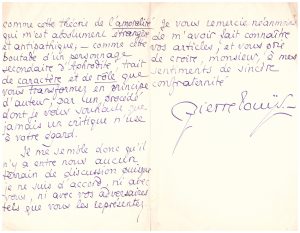 comme cette théorie de l'amoralité
qui m'est absolument étrangère
et antipathique, — comme cette
boutade d'un personnage
secondaire d'Aphrodite, trait
de caractère et de rôle que
vous transformez en principe
d'auteur, par un procédé
dont je vous souhaite que
jamais un critique n'use
à votre égard.
Il me semble donc qu'il
n'y a entre nous aucun
terrain de discussion puisque
je ne suis d'accord, ni avec
vous, ni avec vos adversaires
tels que vous les représentez.
Je vous remercie néanmoins
de m'avoir fait connaître
vos articles, et vous prie
de croire, monsieur, à mes
sentiments de sincère
confraternité
Pierre Louÿs